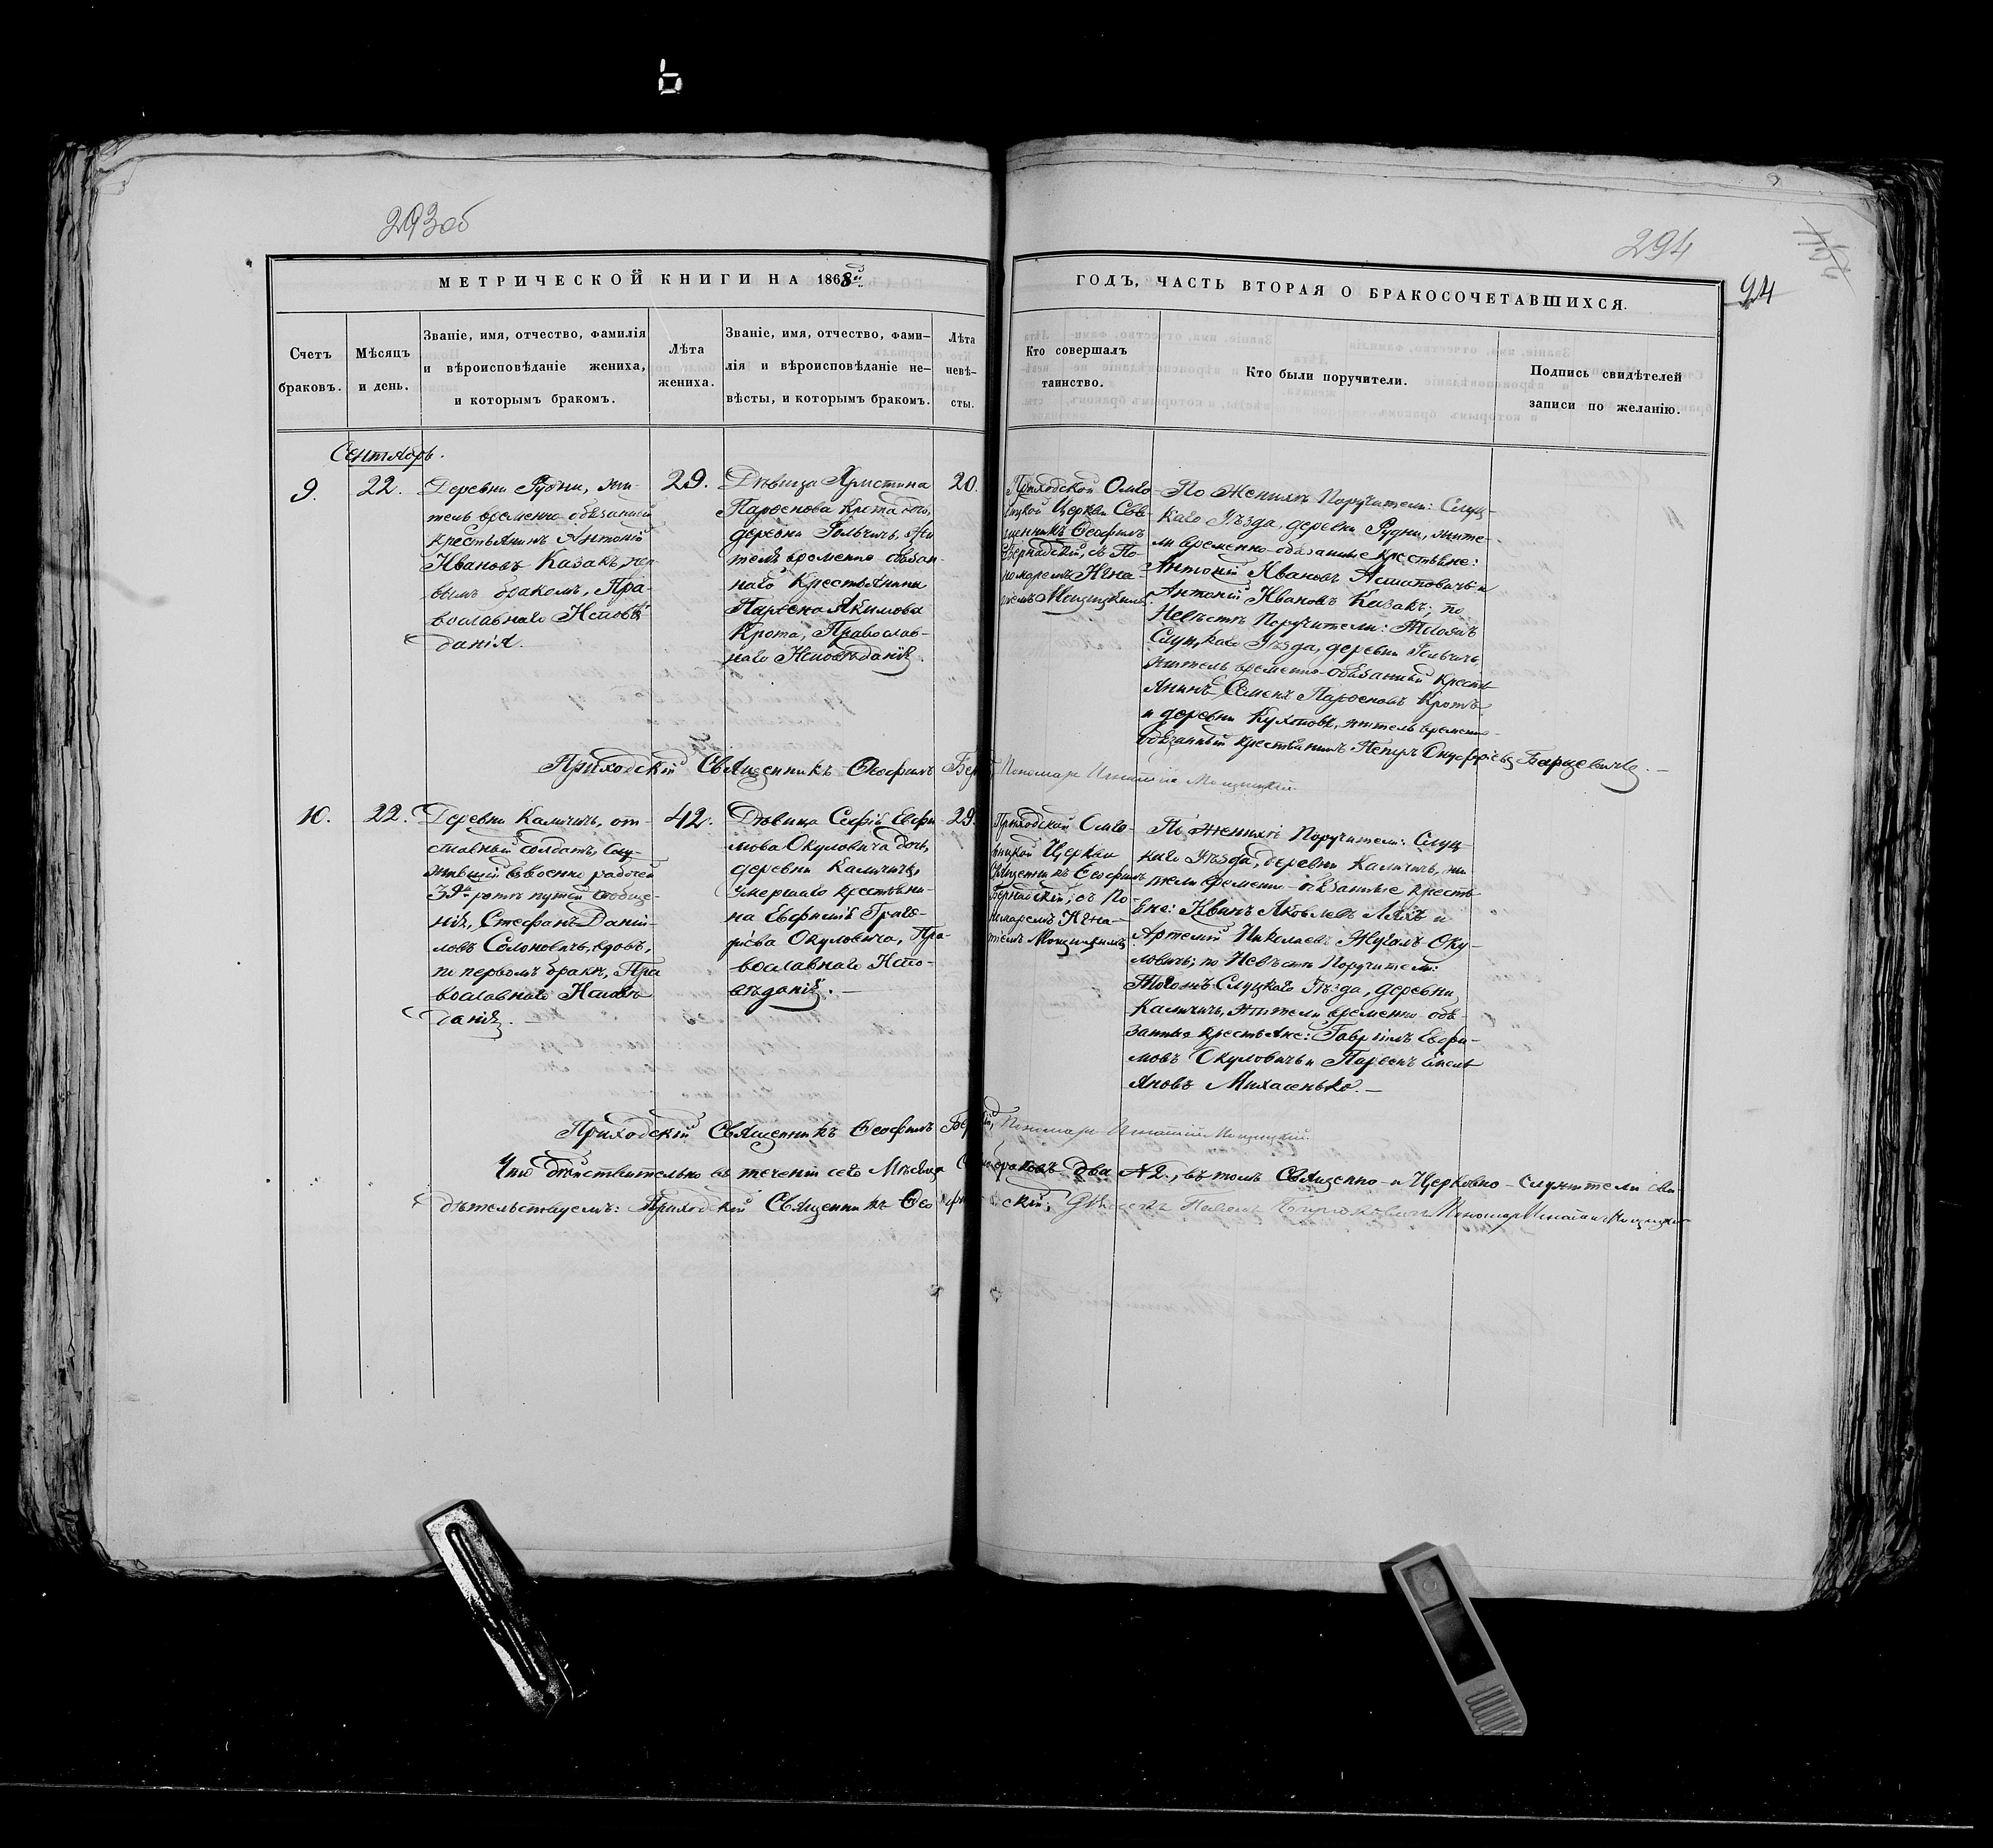 293об
294
94
МЕТРИЧЕСКОЙ КНИГИ НА 1868й
ГОДЪ, ЧАСТЬ ВТОРАЯ О БРАКОСОЧЕТАВШИХСЯ.
Счетъ
браковъ.
Мѣсяцъ
и день.
Званіе, имя, отчество, фамилія
и вѣроисповѣданіе жениха,
и которымъ бракомъ.
Лѣта
жениха.
Званіе, имя, отчество, фами-
лія и вѣроисповѣданіе не-
вѣсты, и которымъ бракомъ.
Лѣта
невѣ-
сты.
Кто совершалъ
таинство.
Кто были поручители.
Подпись свидѣтелей
записи по желанію.
Сентябрь.
9.
22.
Деревни Рудни, жи-
тель временно обязанный
крестьянинъ Антоній
Ивановъ Казакъ, пер-
вымъ бракомъ, Пра-
вославнаго Исповѣ-
данія.
29.
Дѣвица Христина
Парѳенова Крота дочь,
деревни Гольчичъ, жи-
теля временно обязан-
наго Крестьянина
Парѳена Якимова
Крота, Православ-
наго Исповѣданія.
20.
Приходской
Церкви Свя-
щенникъ Ѳеофилъ
Бернадскій, съ По-
номаремъ Игна-
тіемъ
По Женихѣ Поручители: Слуц-
каго Уѣзда, деревни Рудни, жите-
ли временно-обязанные крестьяне:
Антоній Ивановъ и
Антоній Ивановъ Казакъ; по
Невѣстѣ Поручители: Тогожъ
Слуцкаго Уѣзда, деревни Гольчичъ,
житель временно-обязанный кресть-
янинъ Семенъ Парѳеновъ Кротъ
и деревни житель временно-
обязанный крестьянинъ Онуфріевъ Барцевичъ.
Приходскій Священникъ Ѳеофилъ
Пономарь Игнатій
10.
22.
Деревни Каличичъ, от-
ставный солдатъ, слу-
жившій въ военно рабочей
39й ротѣ путей сообще-
нія, Стефанъ Даніи-
ловъ Солоновичъ, вдовъ,
по первомъ бракѣ, Пра
вославнаго Исповѣ
данія.
42.
Дѣвица Софія Евфи
мова Окуловича дочь,
деревни Каличичъ,
умершаго крестьяни-
на Евфимія Григо-
рьева Окуловича, Пра-
вославнаго Испо-
вѣданія.
29.
Приходской
Церкви
Священникъ Ѳеофилъ
Бернадскій, съ По-
номаремъ Игна-
тіемъ
По женихѣ Поручители: Слуц-
каго Уѣзда, деревни Каличичъ, жи
тели временно-обязанные кресть-
яне: Иванъ Яковлевъ Ляхъ и
Артемій Николаевъ Оку-
ловичъ; по Невѣстѣ Поручители:
Тогожъ Слуцкаго Уѣзда, деревни
Каличичъ, жители временно-обя-
занные крестьяне: Гавріилъ Евфи-
мовъ Окуловичъ и Парѳенъ Емель
яновъ Михасенько.
Приходскій Священникъ Ѳеофилъ
Пономарь Игнатій
Что дѣйствительно въ теченіи сего Мѣсяца браковъ два №2., въ томъ Священно-и Церковно-служители сви-
дѣтельствуемъ: Приходскій Священникъ Пономарь Игнатій